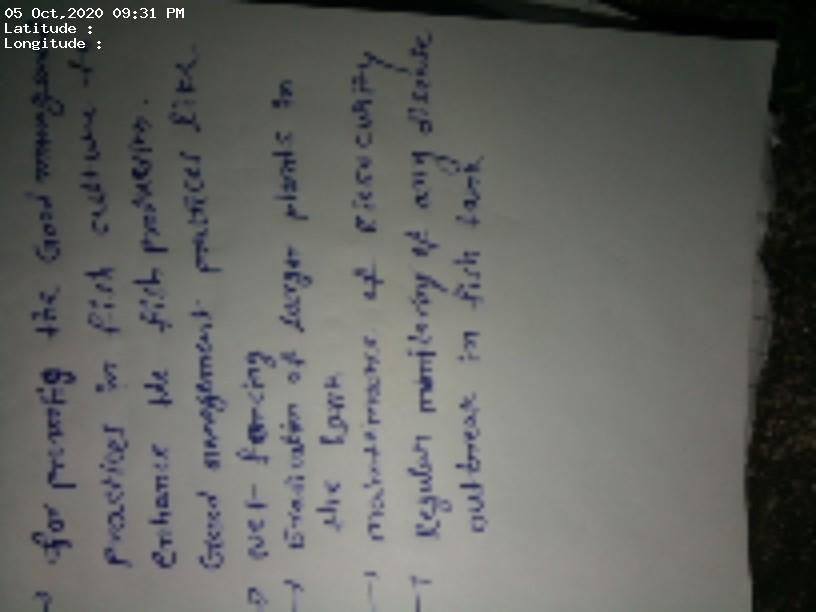 05 Oct,2020 09:31 PM
Latitude :
Longitude :
→ for promotig the Good managem
practices in fish culture to
enhance the fish production.
Good management practices like.
→ net-fencing
→ Eradication of larger plants in
the bank
→ maintenance of Biosecurity
→ Regular monitoring of any disease
outbreak in fish tank